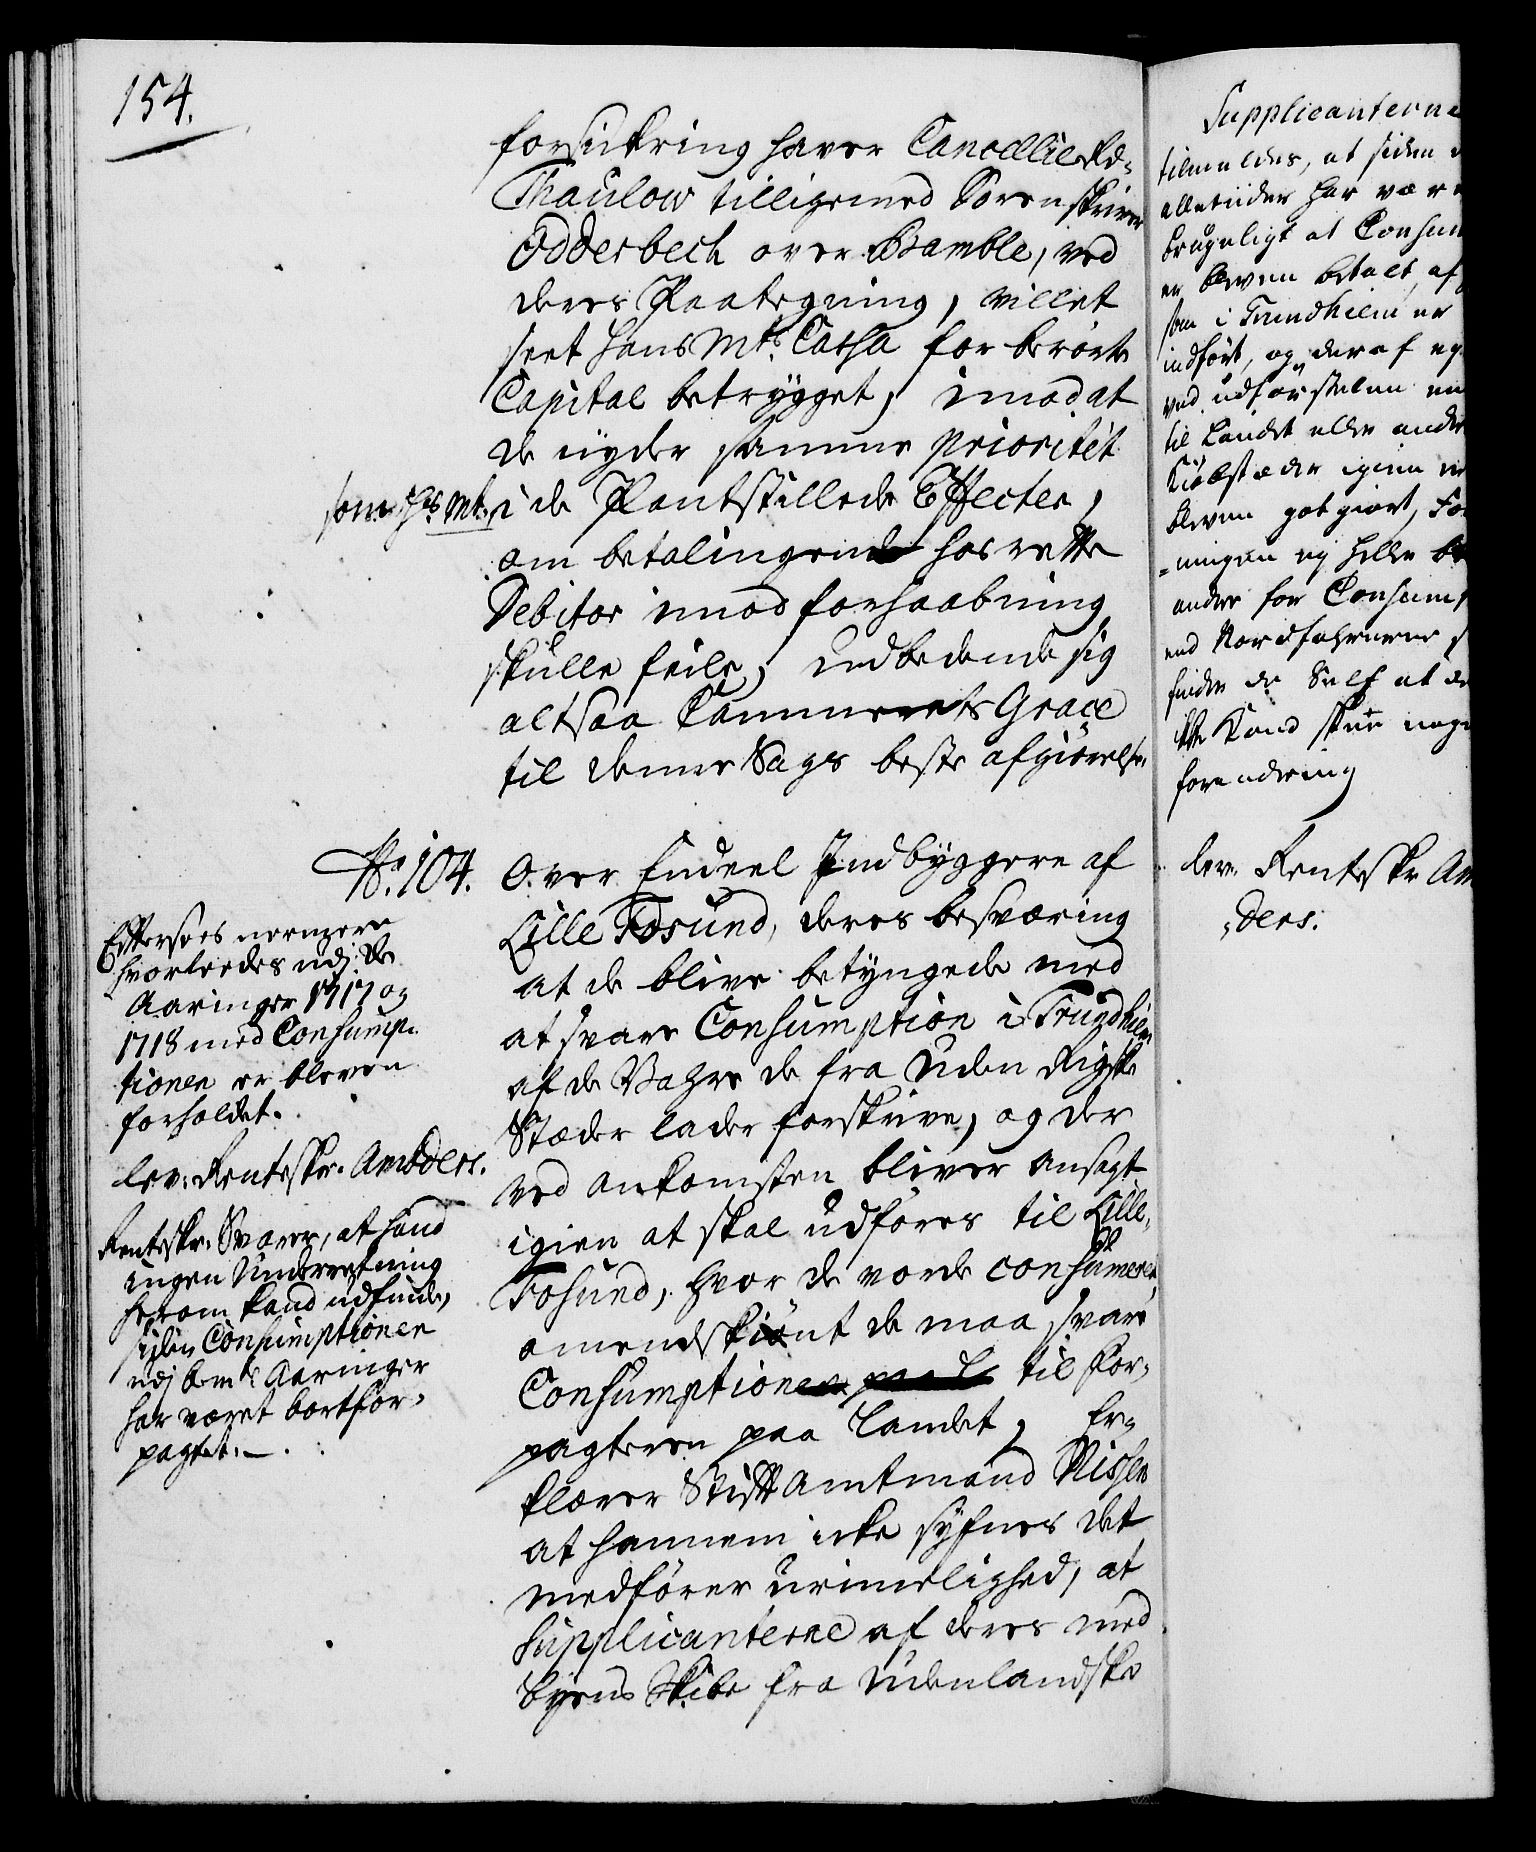 154.
forsickring haver Cancellie Rd=
Thaulow tilligemed Sorenskriver
Odderbech over Bamble, ved
deres Paategning, villet
seet Hans Mts. Cassa for berörte
Capital betrygget, imod at
de nyder samme prioritet
som Hs Mt. i de Pantstillede Effecter,
om betalingen hos rette
Debitor imod forhaabning
skulle feile, Udbedende sig
altsaa Cammerets Grace
til denne Sags beste afgiörelse.
No. 104. Over Endeel Indbyggere af
Lille Fosund, deres besværing
at de blive betyngede med
at svare Consumption i Trundhiem
af de Vahre de fra Uden Rigske
Stæder lader forskrive, og der
ved ankomsten bliver ansagt
igien at skal udföres til Lille,
Fosund, hvor de vorde consumeret,
omendskiönt de maa svare
Consumptionen til For-
pagteren paa Landet, Er=
klærer Stift Amtmand Nissen
at hannem icke syfnes det
medförer Urimelighed, at
Supplicanterne af deres med
byens Skibe fra Udenlandske
Efftersees nermere
hvorleedes udj de
Aaringer 1717 og
1718 med Consump-
tionen er bleven
forholdet.
lev: Renteskr. Ambders.
Renteskr: Svarer, at hand
ingen Underretning
herom kand udfinde,
siden Consumptionen
udj bemte Aaringer
har været bortfor-
pagtet.
Supplicanterne
tilmeldes, at siden
alletiider har være
brugeligt at Consum
er bleven betalt, af
som i Trundhiem er
indfört, og deraf ey
ved udförselen
til Landet eller andre
Kiöbstæder igien
bleven godgiort,
=ningen ey heller
andre for Consum
end Nordfahrerne
finder de Self at
ikke Kand skee
forandring
lev. Renteskr Am
=ders.